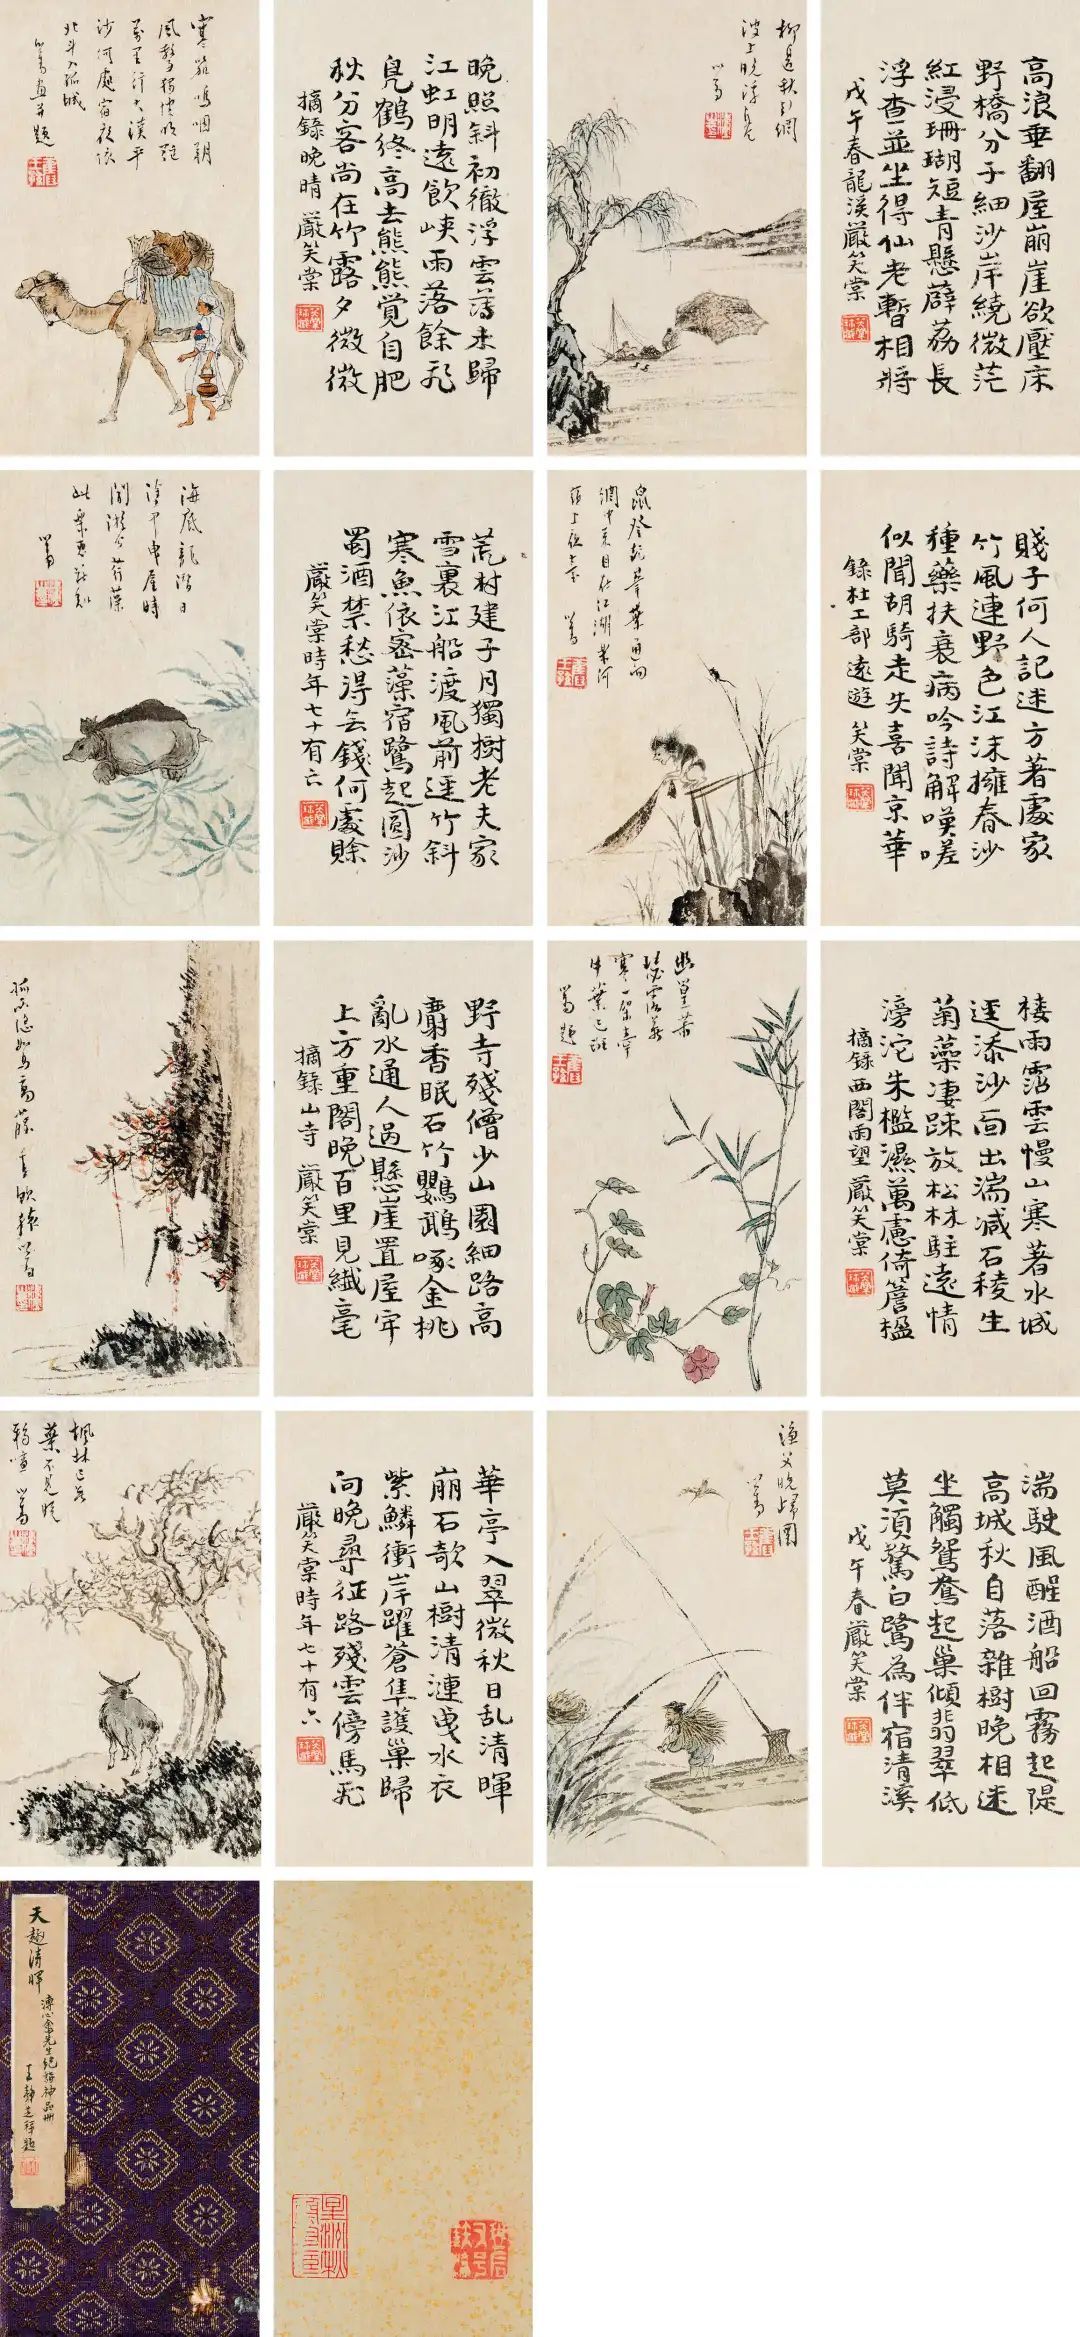 寒笳鳴咽朔
風驚獨使明駝
萬里行大漠平
沙何處宿夜依
北斗入孤城
心畬畫并題
晚照斜初徹浮雲薄未歸
江虹明遠飲峽雨落餘飛
鳧鶴終高去熊羆覺自肥
秋分客尚在竹露夕微微
摘錄晚晴 嚴笑棠
柳邊秋引網
波上晚浮光
心畬
高浪垂翻屋崩崖欲壓床
野橋分子細沙岸繞微茫
紅浸珊瑚短青懸薜荔長
浮查並坐得仙老暫相將
戊午春龍溪嚴笑棠
海底龍潛日
閒遊

心畬
荒村建子月獨樹老夫家
雪裏江船渡風前逕竹斜
寒魚依密藻宿鷺起圓沙
蜀酒禁愁得無錢何處賒
嚴笑棠時年七十有六
心畬
賤子何人記迷方著處家
竹風連野色江沫擁春沙
種藥扶衰病吟詩解嘆嗟
似聞胡騎走失喜聞京華
錄杜工部遠遊 笑棠
高藤垂飲猿 心畬
野寺殘僧少山園細路高
麝香眠石竹鸚鵡啄金桃
亂水通人過懸崖置屋牢
上方重閣晚百里見纖毫
摘錄山寺 嚴笑棠
心畬題
樓雨霑雲幔山寒著水城
逕添沙面出湍減石稜生
菊蘂淒踈放松林駐遠情
滂沱朱檻濕萬慮倚簷楹
摘錄西閣雨望 嚴笑棠
楓林已落
葉不見晚
鴉喧 心畬
華亭入翠微秋日乱清暉
崩石欹山樹清漣曳水衣
紫鱗衝岸躍蒼隼護巢歸
向晚尋征路殘雲傍馬飛
嚴笑棠時年七十有六
漁父晚歸圖
心畬
湍駛風醒酒船回霧起隄
高城秋自落雜樹晚相迷
坐觸鴛鴦起巢傾翡翠低
莫須驚白鷺為伴宿清溪
戊午春嚴笑棠
天趣清暉
溥心畬先生絕詣神品冊